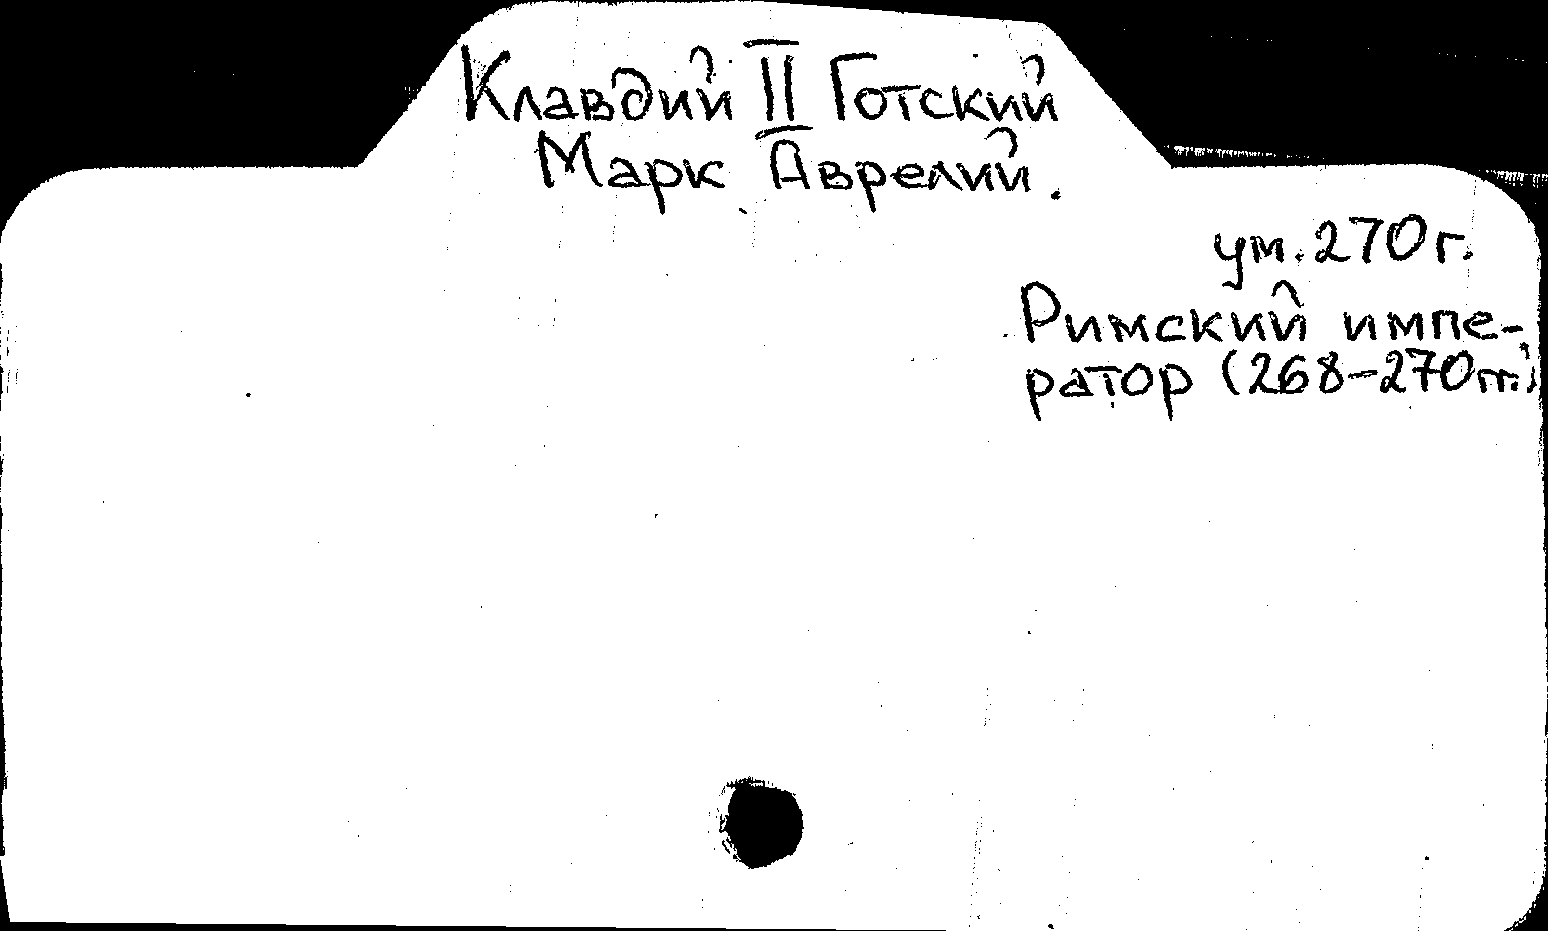 Клавдий II Готский
Марк Аврелий.
ум. 270 г.
Римский импе-
ратор (268-270 гг.)